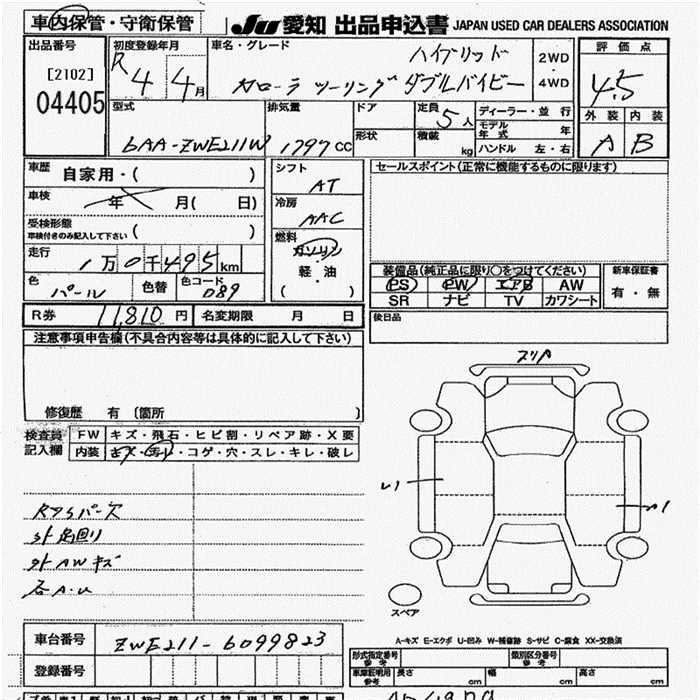 車内保管・守衛保管
JU 愛知 出品申込書 JAPAN USED CAR DEALERS ASSOCIATION
出品番号
[2102]
04405
初度登録年月
R4 4月
車名・グレード
ハイブリッド
カローラ ツーリング ダブルバイビー
2WD
・
4WD
評価点
4.5
外装 内装
A B
型式
6AA-ZWE211W
排気量
1797 CC
ドア
形状
定員 5人
積載 kg
ディーラー・並行
モデル年式 年
ハンドル 左・右
車歴 自家用・( )
車検 年 月( 日)
受検形態
車検付きのみ記入して下さい ( )
走行 1万0千495km
色 パール
色替
色コード 089
シフト
AT
冷房
AAC
燃料
ガソリン
・
軽・油
( )
セールスポイント(正常に機能するものに限ります)
装備品(純正品に限り○をつけてください)
PS PW エアB AW
SR ナビ TV カワシート
新車保証書
有・無
R券 11,810円 名変期限 月 日
後日品
注意事項申告欄(不具合内容等は具体的に記入して下さい)
修復歴 有 〔箇所 〕
検査員記入欄
FW キズ・飛石・ヒビ割・リペア跡・X要
内装 キズ・汚レ・コゲ・穴・スレ・キレ・破レ
外 AWキズ
各A.U
スリハ
スペア
A-キズ E-エクボ U-凹み W-補修跡 S-サビ C-腐食 XX-交換済
車台番号 ZWE211-6099823
登録番号
形式指定番号
参考
類別区分番号
参考
車庫証明用
参考
長さ cm 幅 cm 高さ cm